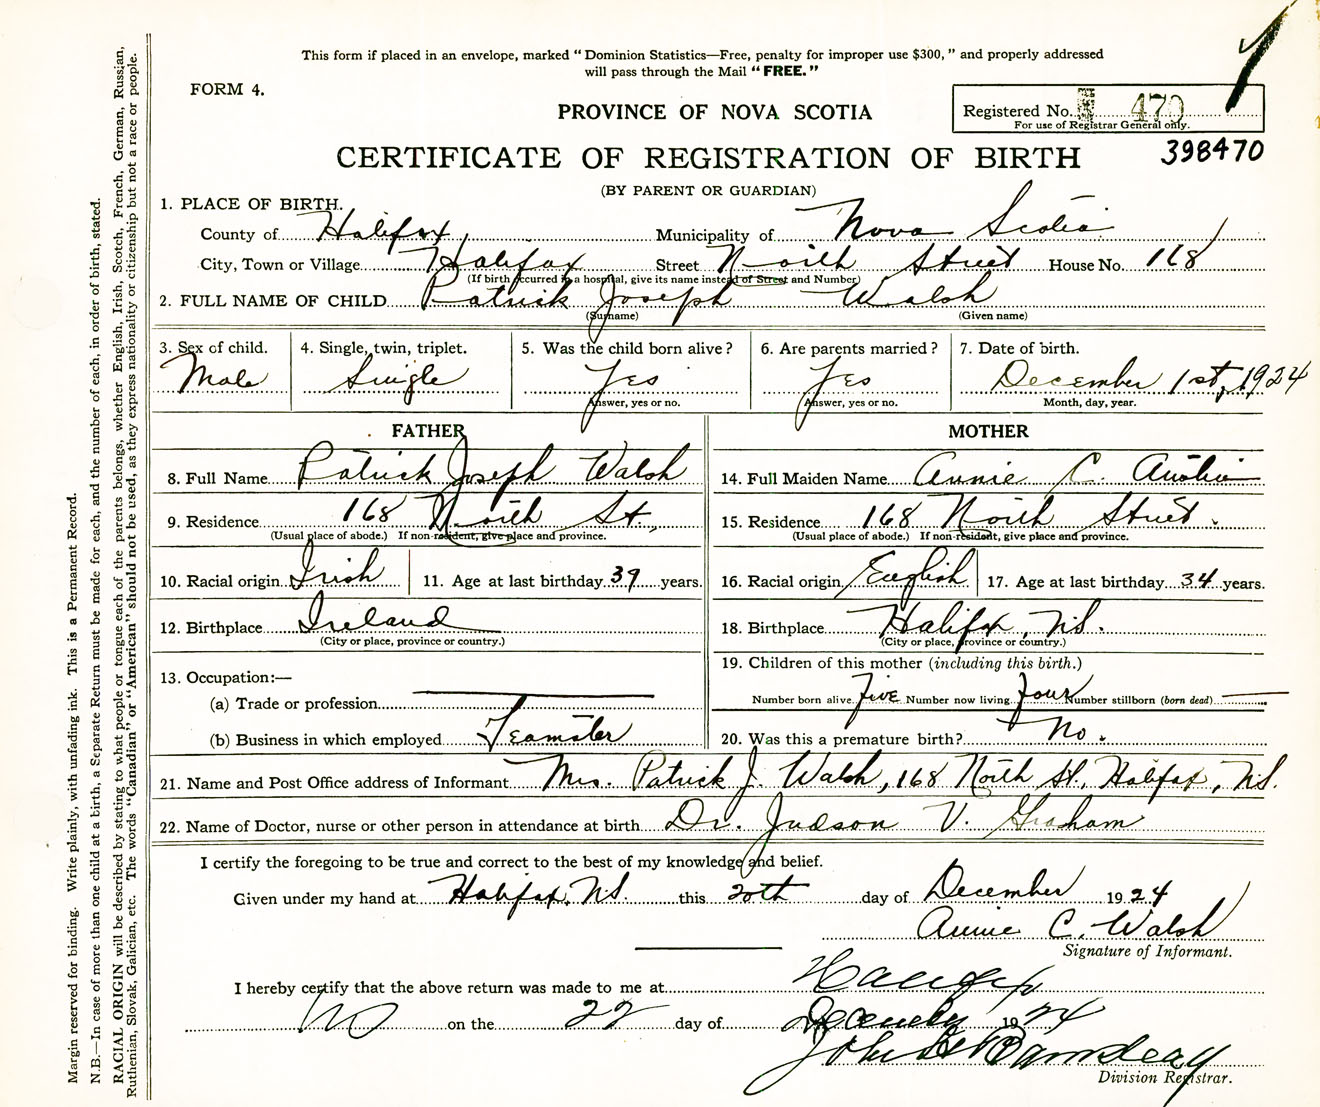 This form if placed in an envelope, marked "Dominion Statistics—Free, penalty for improper use $300," and properly addressed
will pass through the Mail "FREE."
FORM 4.
PROVINCE OF NOVA SCOTIA
Registered No. 470
For use of Registrar General only.
CERTIFICATE OF REGISTRATION OF BIRTH
398470
(BY PARENT OR GUARDIAN)
1. PLACE OF BIRTH.
County of Halifax, Municipality of Nova Scotia
City, Town or Village Halifax Street North Street House No. 168
(If birth occurred in a hospital, give its name instead of Street and Number)
2. FULL NAME OF CHILD Patrick Joseph Walsh
(Surname) (Given name)
3. Sex of child. 4. Single, twin, triplet. 5. Was the child born alive? 6. Are parents married? 7. Date of birth.
Male Single Yes Yes December 1st, 1924
Answer, yes or no. Answer, yes or no. Month, day, year.
FATHER MOTHER
8. Full Name Patrick Joseph Walsh 14. Full Maiden Name Annie C. Austin
9. Residence 168 North St., 15. Residence 168 North Street.
(Usual place of abode.) If non-resident, give place and province. (Usual place of abode.) If non-resident, give place and province.
10. Racial origin Irish 11. Age at last birthday 39 years. 16. Racial origin English 17. Age at last birthday 34 years.
12. Birthplace Ireland 18. Birthplace Halifax, N.S.
(City or place, province or country.) (City or place, province or country.)
13. Occupation:— 19. Children of this mother (including this birth.)
(a) Trade or profession Number born alive five Number now living four Number stillborn (born dead)
(b) Business in which employed Teamster 20. Was this a premature birth? No.
21. Name and Post Office address of Informant Mrs. Patrick J. Walsh, 168 North St., Halifax, N.S.
22. Name of Doctor, nurse or other person in attendance at birth Dr. Judson V. Graham
I certify the foregoing to be true and correct to the best of my knowledge and belief.
Given under my hand at Halifax, N.S. this 20th day of December 1924
Annie C. Walsh
Signature of Informant.
I hereby certify that the above return was made to me at Halifax
NS on the 22 day of December 1924
John
Division Registrar.
Margin reserved for binding. Write plainly, with unfading ink. This is a Permanent Record.
N.B.—In case of more than one child at a birth, a Separate Return must be made for each, and the number of each, in order of birth, stated.
RACIAL ORIGIN will be described by stating to what people or tongue each of the parents belongs, whether English, Irish, Scotch, French, German, Russian,
Ruthenian, Slovak, Galician, etc. The words "Canadian" or "American" should not be used, as they express nationality or citizenship but not a race or people.